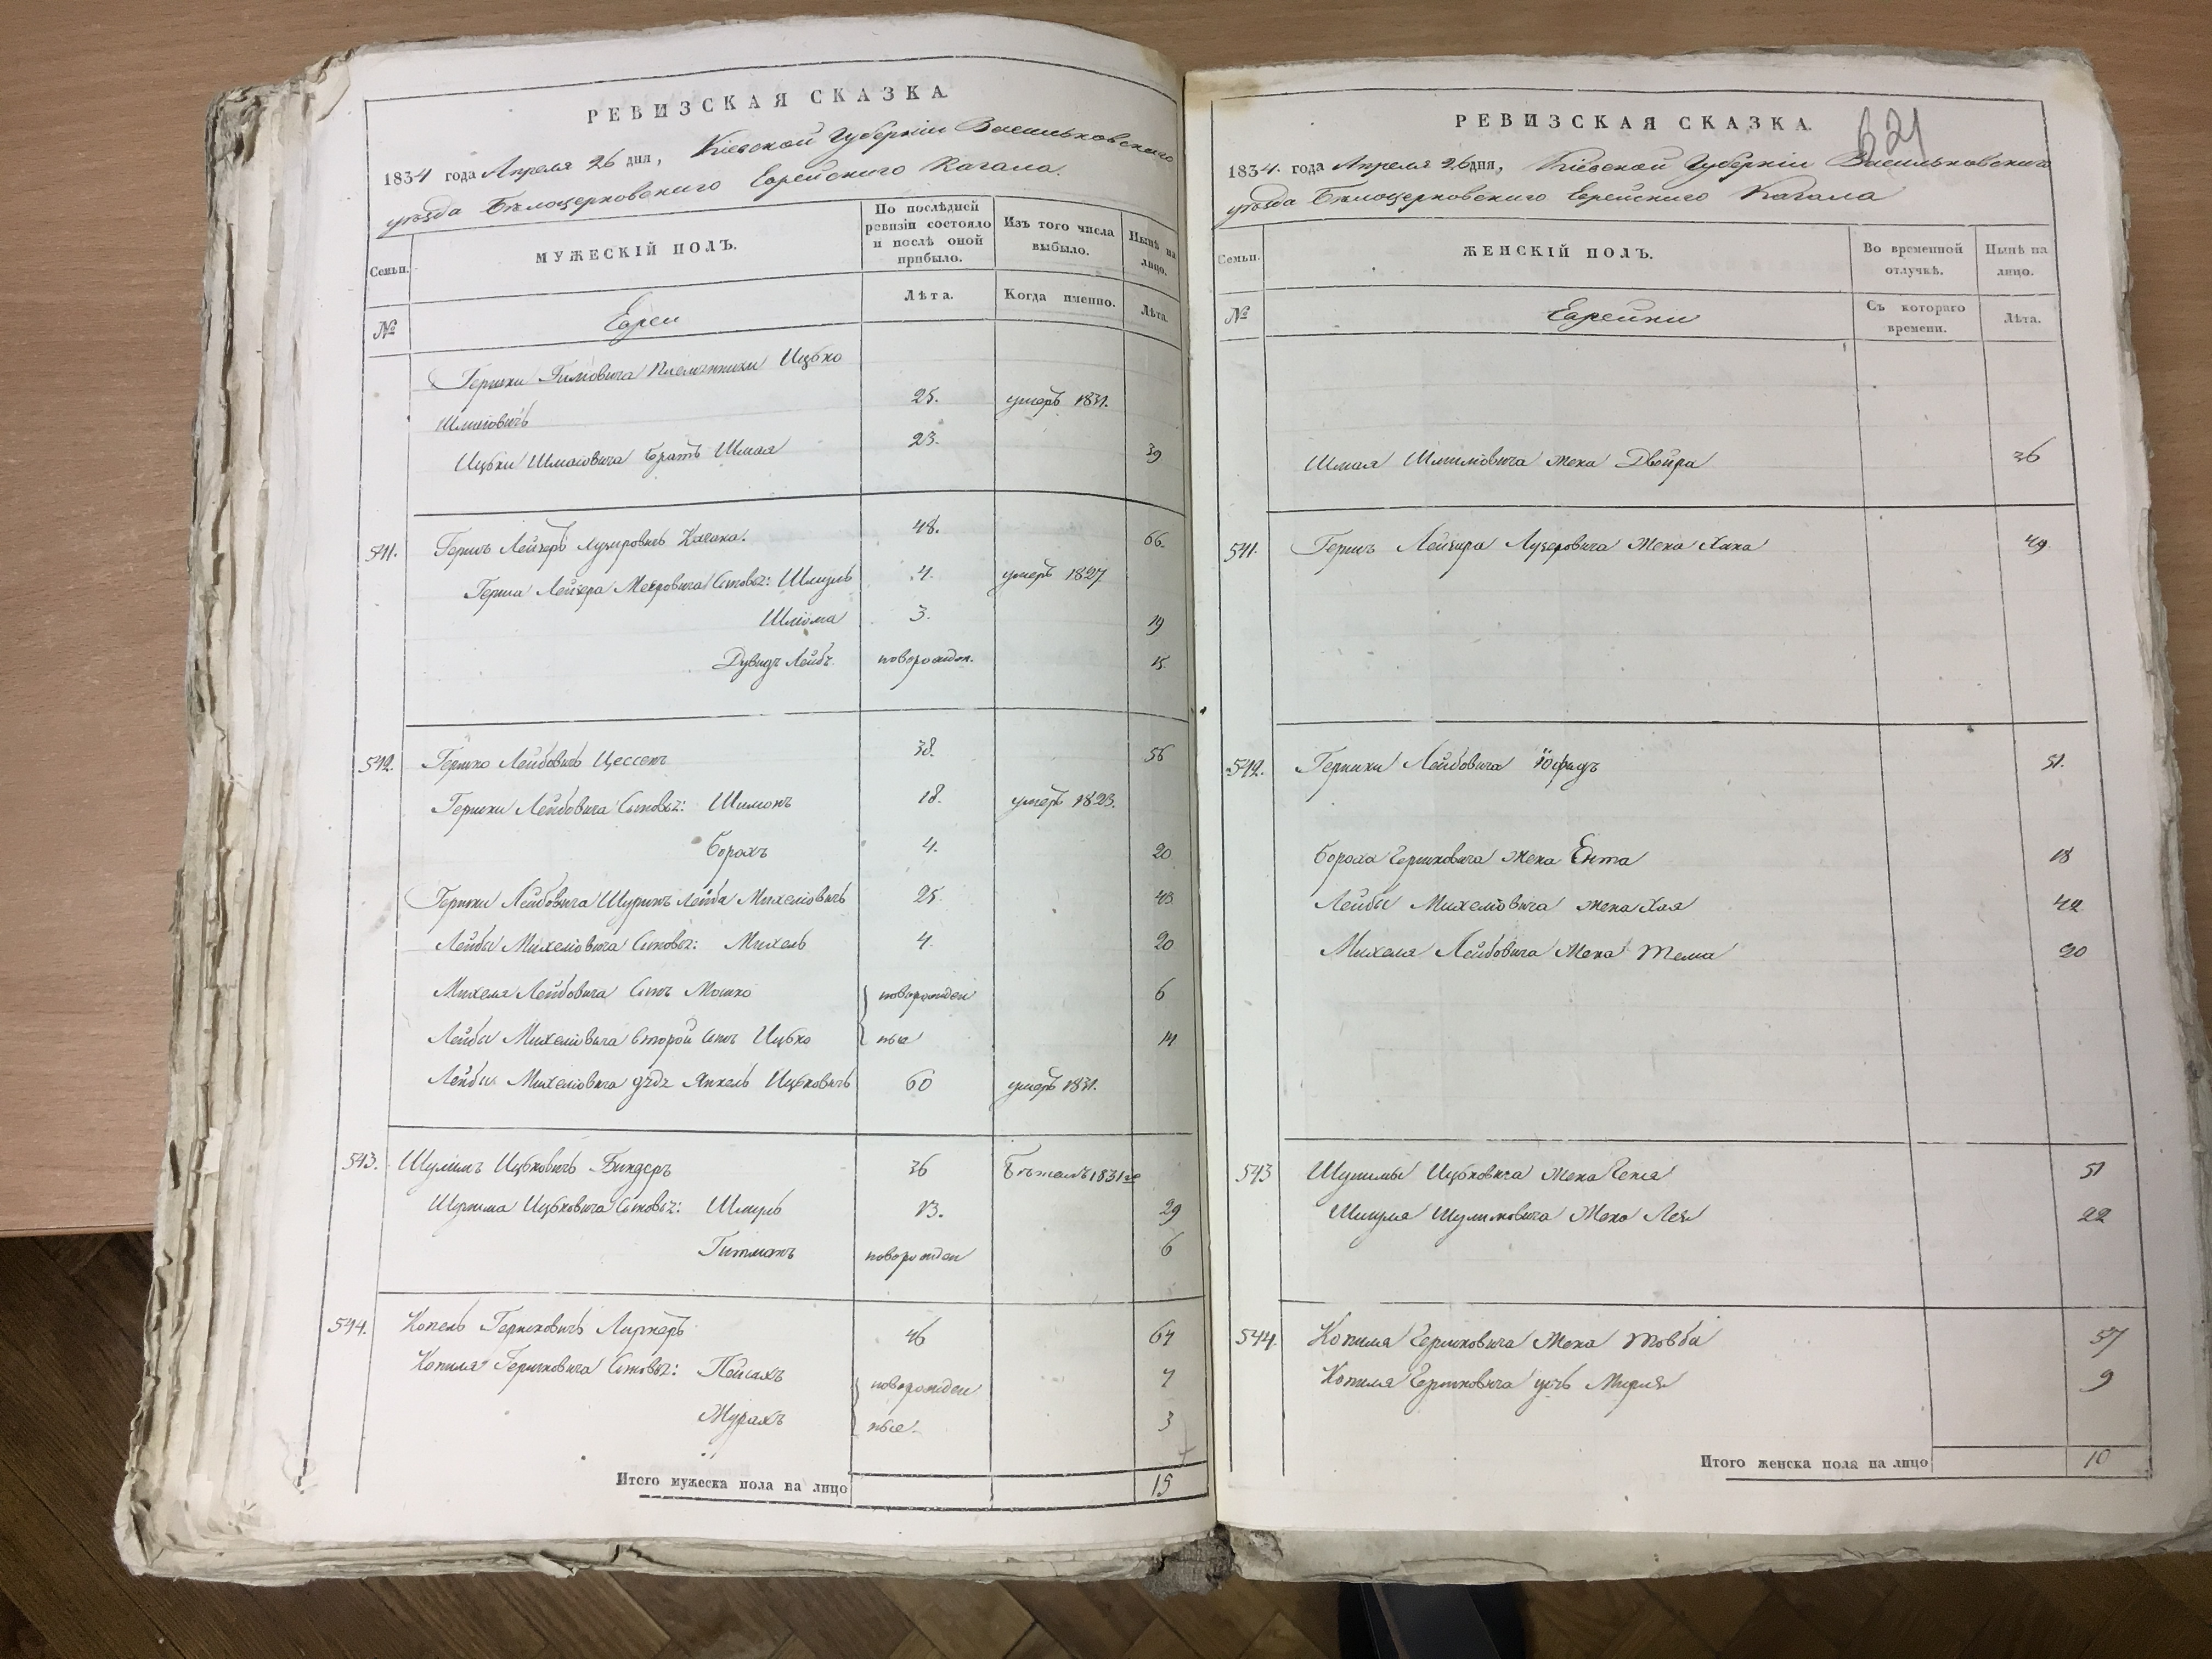 РЕВИЗСКАЯ СКАЗКА
1834 года Апреля 26 дня, Кіевской Губерніи Васильковского
уѣзда Бѣлоцерковского Еврейского Кагала.
Семьи.
МУЖЕСКІЙ ПОЛЪ.
По послѣдней ревизіи состояло и послѣ оной прибыло.
Изъ того числа выбыло.
Нынѣ на лицо.
№
Евреи
Лѣта.
Когда именно.
Лѣта.
Гершки племянники Ицько
Шмаіовичъ 25. умеръ 1831.
Ицьки Шмаіовича братъ Шмая 23. 39
541. Гершъ Лейзеръ Лузеровичъ 48. 66.
Герша Лейзера Сыновья: Шмуль 4. умеръ 1827
Шліома 3. 19
Дувидъ Лейбъ. новорожден. 15
542. Гершко Лейбовичъ Цессень 38. 56
Гершки Лейбовича Сыновья: Шимонъ 18. умеръ 1823.
Борохъ 4. 20
Гершки Лейбовича Шуринъ Лейба Михеліовичъ 25. 43
Лейбы Михеліовича Сыновья: Михель 4. 20
Михеля Лейбовича Сынъ Мошко новорожден 6
Лейбы Михеліовича второй Сынъ Ицько ные 14
Лейбы Михеліовича дѣдъ Янкель Ицьковичъ 60 умеръ 1831.
543. Шулимъ Ицьковичъ Биндеръ 36 Бѣжалъ 1831го
Шулима Ицьковича Сыновья: Шмуль 13. 29
Гитманъ новорожден 6
544. Копель Гершковичъ 46 64
Копиля Гершковича Сыновья: Пейсахъ новорожден 7
ные. 3
Итого мужеска пола на лицо 15
РЕВИЗСКАЯ СКАЗКА.
621
1834. года Апреля 26 дня, Кіевской Губерніи Васильковского
уѣзда Бѣлоцерковского Еврейского Кагала
Семьи.
ЖЕНСКІЙ ПОЛЪ.
Во временной отлучкѣ.
Нынѣ на лицо.
№
Еврейки
Съ котораго времени.
Лѣта.
Шмая Шмаіовича жена Двойра 36
541. Гершъ Лейзера Лузеровича жена Хана 49.
542. Гершки Лейбовича 51.
Бороха Гершковича жена Ента 18
Лейбы Михеліовича жена Хая 42
Михеля Лейбовича жена Тема 20
543 Шулимы Ицьковича жена Геня 51
Шмуля Шулимовича жена Лея 22
544. Копиля Гершковича жена Товба 57
Копиля Гершковича дочь 9
Итого женска пола на лицо 10